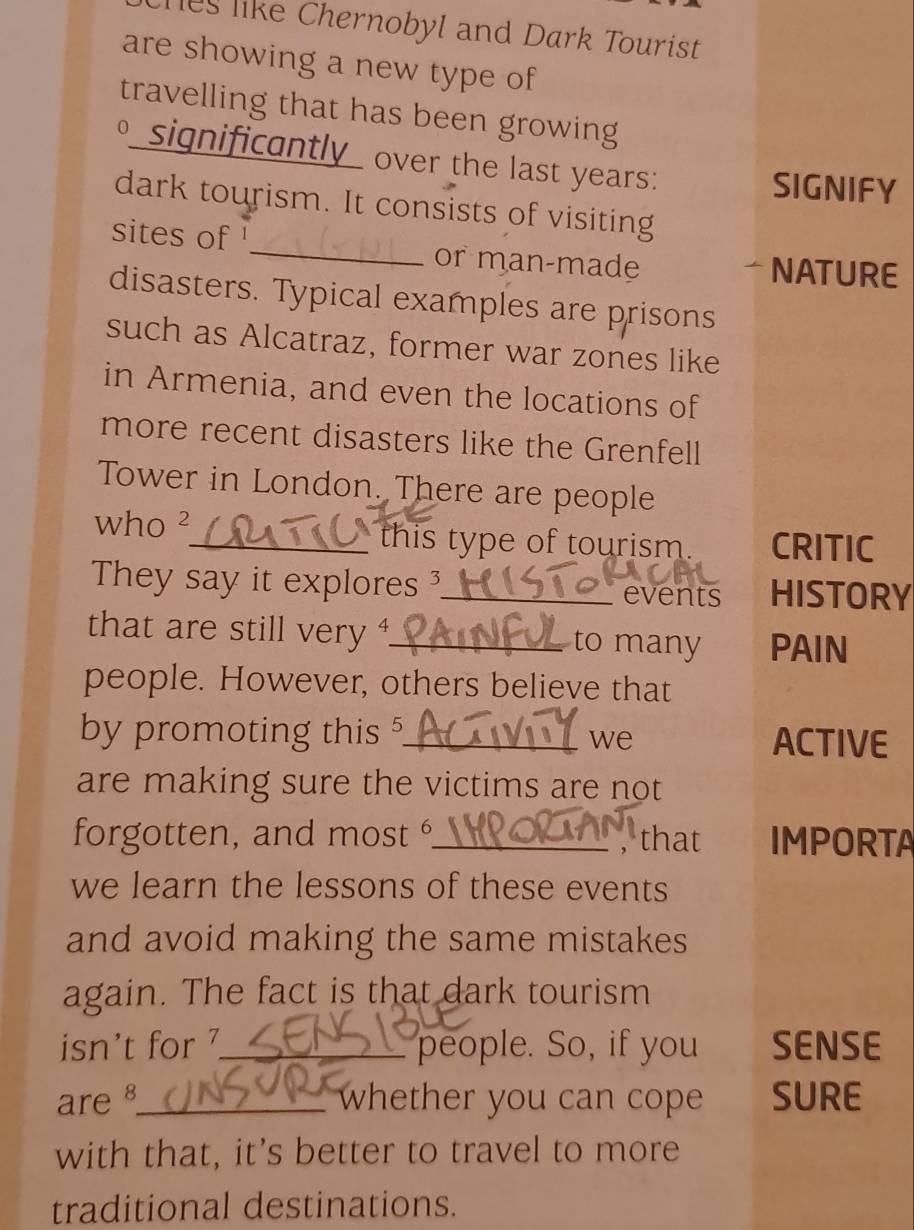 like Chernobyl and Dark Tourist
are showing a new type of
travelling that has been growing
0 significantly over the last years: SIGNIFY
dark tourism. It consists of visiting
sites of 1 or man-made NATURE
disasters. Typical examples are prisons
such as Alcatraz, former war zones like
in Armenia, and even the locations of
more recent disasters like the Grenfell
Tower in London. There are people
who 2 CRITICIZE this type of tourism. CRITIC
They say it explores 3 HISTORICAL events HISTORY
that are still very 4 PAINFUL to many PAIN
people. However, others believe that
by promoting this 5 ACTIVITY we ACTIVE
are making sure the victims are not
forgotten, and most 6 IMPORTANT, that IMPORTA
we learn the lessons of these events
and avoid making the same mistakes
again. The fact is that dark tourism
isn't for 7 SENSIBLE people. So, if you SENSE
are 8 UNSURE whether you can cope SURE
with that, it's better to travel to more
traditional destinations.